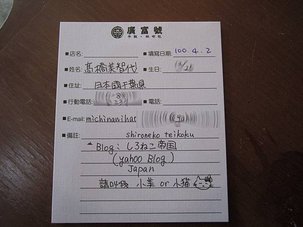 廣富號
店名: 填寫日期: 100.4.2
姓名: 髙橋美智代 生日:
住址: 日本國千葉県
行動電話: 電話:
E-mail: michinanihar
備註: shironeko teikoku
Blog: しろねこ帝国
(yahoo Blog)
Japan
請叫我 小美 or 小猫